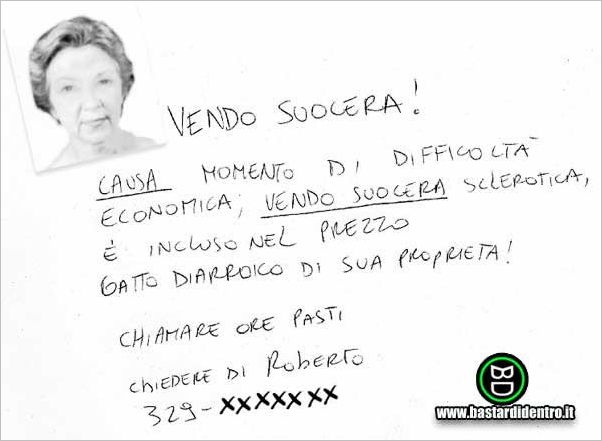 VENDO SUOCERA!
CAUSA MOMENTO DI DIFFICOLTÀ
ECONOMICA; VENDO SUOCERA SCLEROTICA,
È INCLUSO NEL PREZZO
GATTO DIARROICO DI SUA PROPRIETA!
CHIAMARE ORE PASTI
CHIEDERE DI ROBERTO
329-XXXXXXX
www.bastardidentro.it